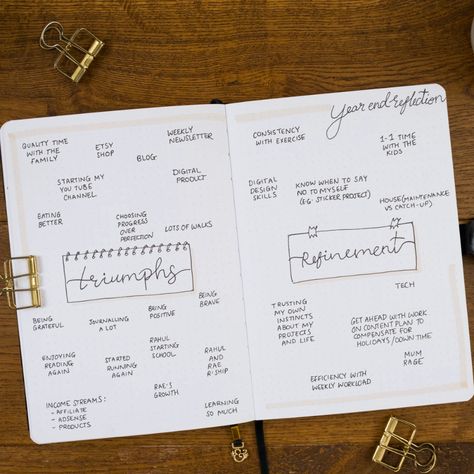 QUALITY TIME
WITH THE
FAMILY
ETSY
SHOP
WEEKLY
NEWSLETTER
BLOG
STARTING MY
YOU TUBE
CHANNEL
DIGITAL
PRODUCT
EATING
BETTER
CHOOSING
PROGRESS
OVER
PERFECTION
LOTS OF WALKS
triumphs
BEING
GRATEFUL
JOURNALLING
A LOT
BEING
POSITIVE
BEING
BRAVE
ENJOYING
READING
AGAIN
STARTED
RUNNING
AGAIN
RAHUL
STARTING
SCHOOL
RAHUL
AND
RAE
R'SHIP
RAE'S
GROWTH
INCOME STREAMS:
- AFFILIATE
- ADSENSE
- PRODUCTS
LEARNING
SO MUCH
Year end reflection
CONSISTENCY
WITH EXERCISE
1-1 TIME
WITH THE
KIDS
DIGITAL
DESIGN
SKILLS
KNOW WHEN TO SAY
NO TO MYSELF
(EG: STICKER PROJECT)
HOUSE (MAINTENANCE
VS CATCH-UP)
Refinement
TECH
TRUSTING
MY OWN
INSTINCTS
ABOUT MY
PROJECTS
AND LIFE
GET AHEAD WITH WORK
ON CONTENT PLAN TO
COMPENSATE FOR
HOLIDAYS / DOWN TIME
MUM
RAGE
EFFICIENCY WITH
WEEKLY WORKLOAD